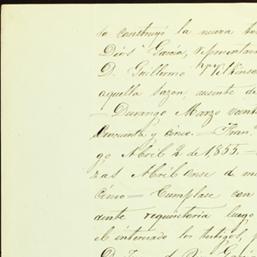 se construyó la nueva
Dios García, representan
D. Guillermo Wilkinson
aquella sazon ausente d
— Durango Marzo veint
Cincuenta y cinco. — Fran
go Abril 2 de 1855. —
zas Abril once de m
cinco — Cumplase con
ante requisitoria luego
el interesado los testigos, p